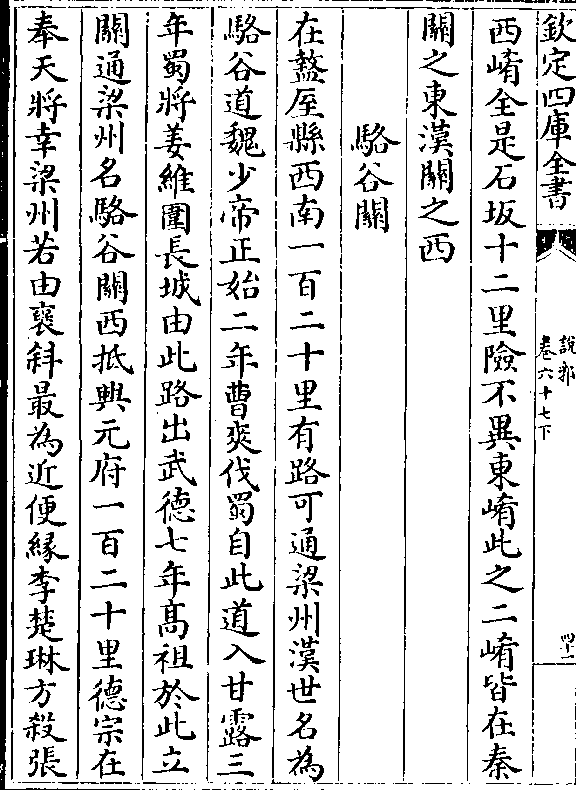 欽定四庫全書
說郛
卷六十七下
四十一
西崤全是石坂十二里險不異東崤此之二崤皆在秦
關之東漢關之西
駱谷關
在盩厔縣西南一百二十里有路可通梁州漢世名為
駱谷道魏少帝正始二年曹爽伐蜀自此道入甘露三
年蜀將姜維圍長城由此路出武德七年髙祖於此立
關通梁州名駱谷關西抵興元府一百二十里德宗在
奉天將幸梁州若由襃斜最為近便緣李楚琳方殺張